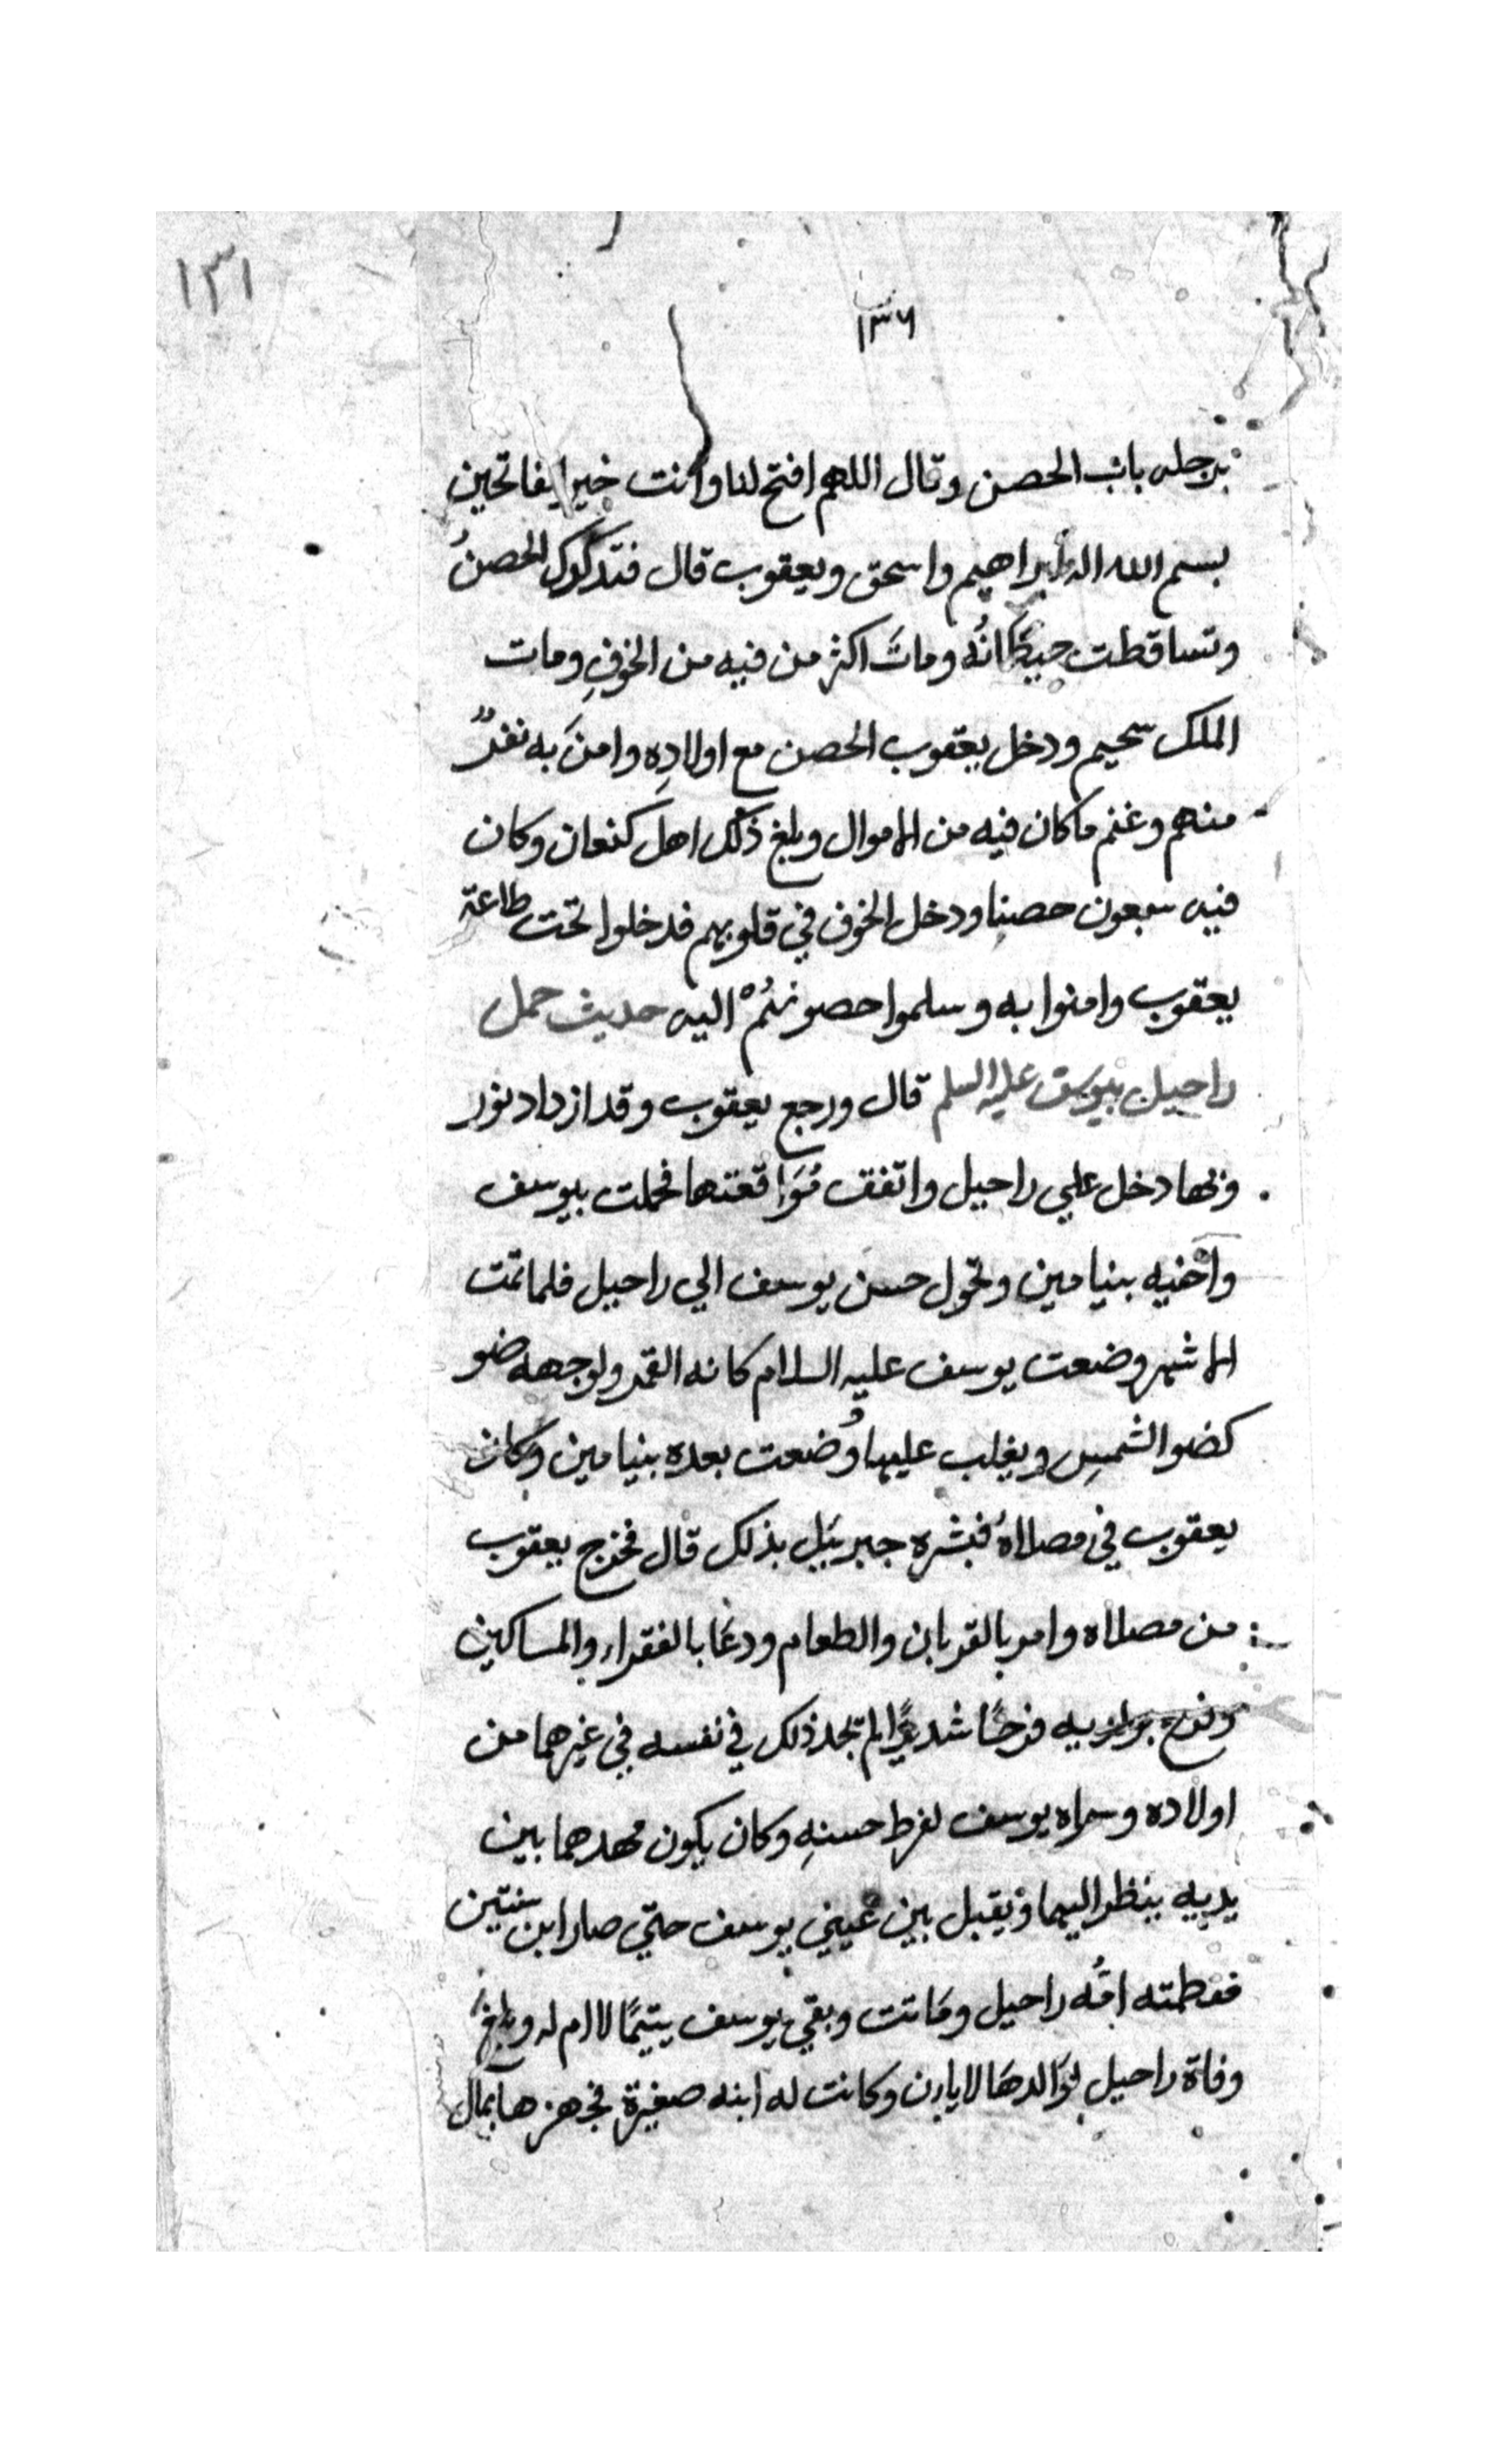 ١٣١
١٣٦
برجله باب الحصن وقال اللهم افتح لنا وانت خير الفاتحين
بسم الله اله ابراهيم واسحق ويعقوب قال فتدكدك الحصنُ
وتساقطت حيطانُه وماتَ اكثر من فيه من الخوفِ ومات
الملك سحيم ودخل يعقوب الحصن مع اولادِه وامنَ به نفرٌ
منهم وغنم ما كان فيه من الاموال وبلغ ذلك اهل كنعان وكان
فيه سبعون حصنا ودخل الخوف في قلوبهم فدخلوا تحت طاعة
يعقوب وامنوا به وسلموا حصونهُمْ اليه حديث حمل
راحيل بيوسف عليه السلم قال ورجع يعقوب وقد ازداد نور
وبها دخل علي راحيل واتفقت مُوَاقعتها فحملت بيوسف
واخيه بنيامين وتحول حسن يوسف الي راحيل فلما تمت
الاشهر وضعت يوسف عليه السلام كانه القمر ولوجهه ضو
كضو الشمسِ ويغلب عليها وُضعت بعده بنيامين وكان
يعقوب في مصلاهُ فبشره جبريَيل بذلك قال فخرج يعقوب
من مصلاه وامر بالقربان والطعام ودعَا بالفقراء والمساكين
وفرح بولديه فرحًا شديدًا لم تجد ذلك في نفسه في غيرهما من
اولاده وسماه يوسف لفرط حسنهِ وكان يكون مهدهما بين
يديه ينظر اليهما ويقبل بين عيني يوسف حتي صار ابن سنتين
ففطمته امُّه راحيل ومَاتت وبقي يوسف يتيمًا لا ام له وبلغ
وفاة راحيل لوَالدهَا لايارن وكانت له ابنه صغيرة فجهزها بمال